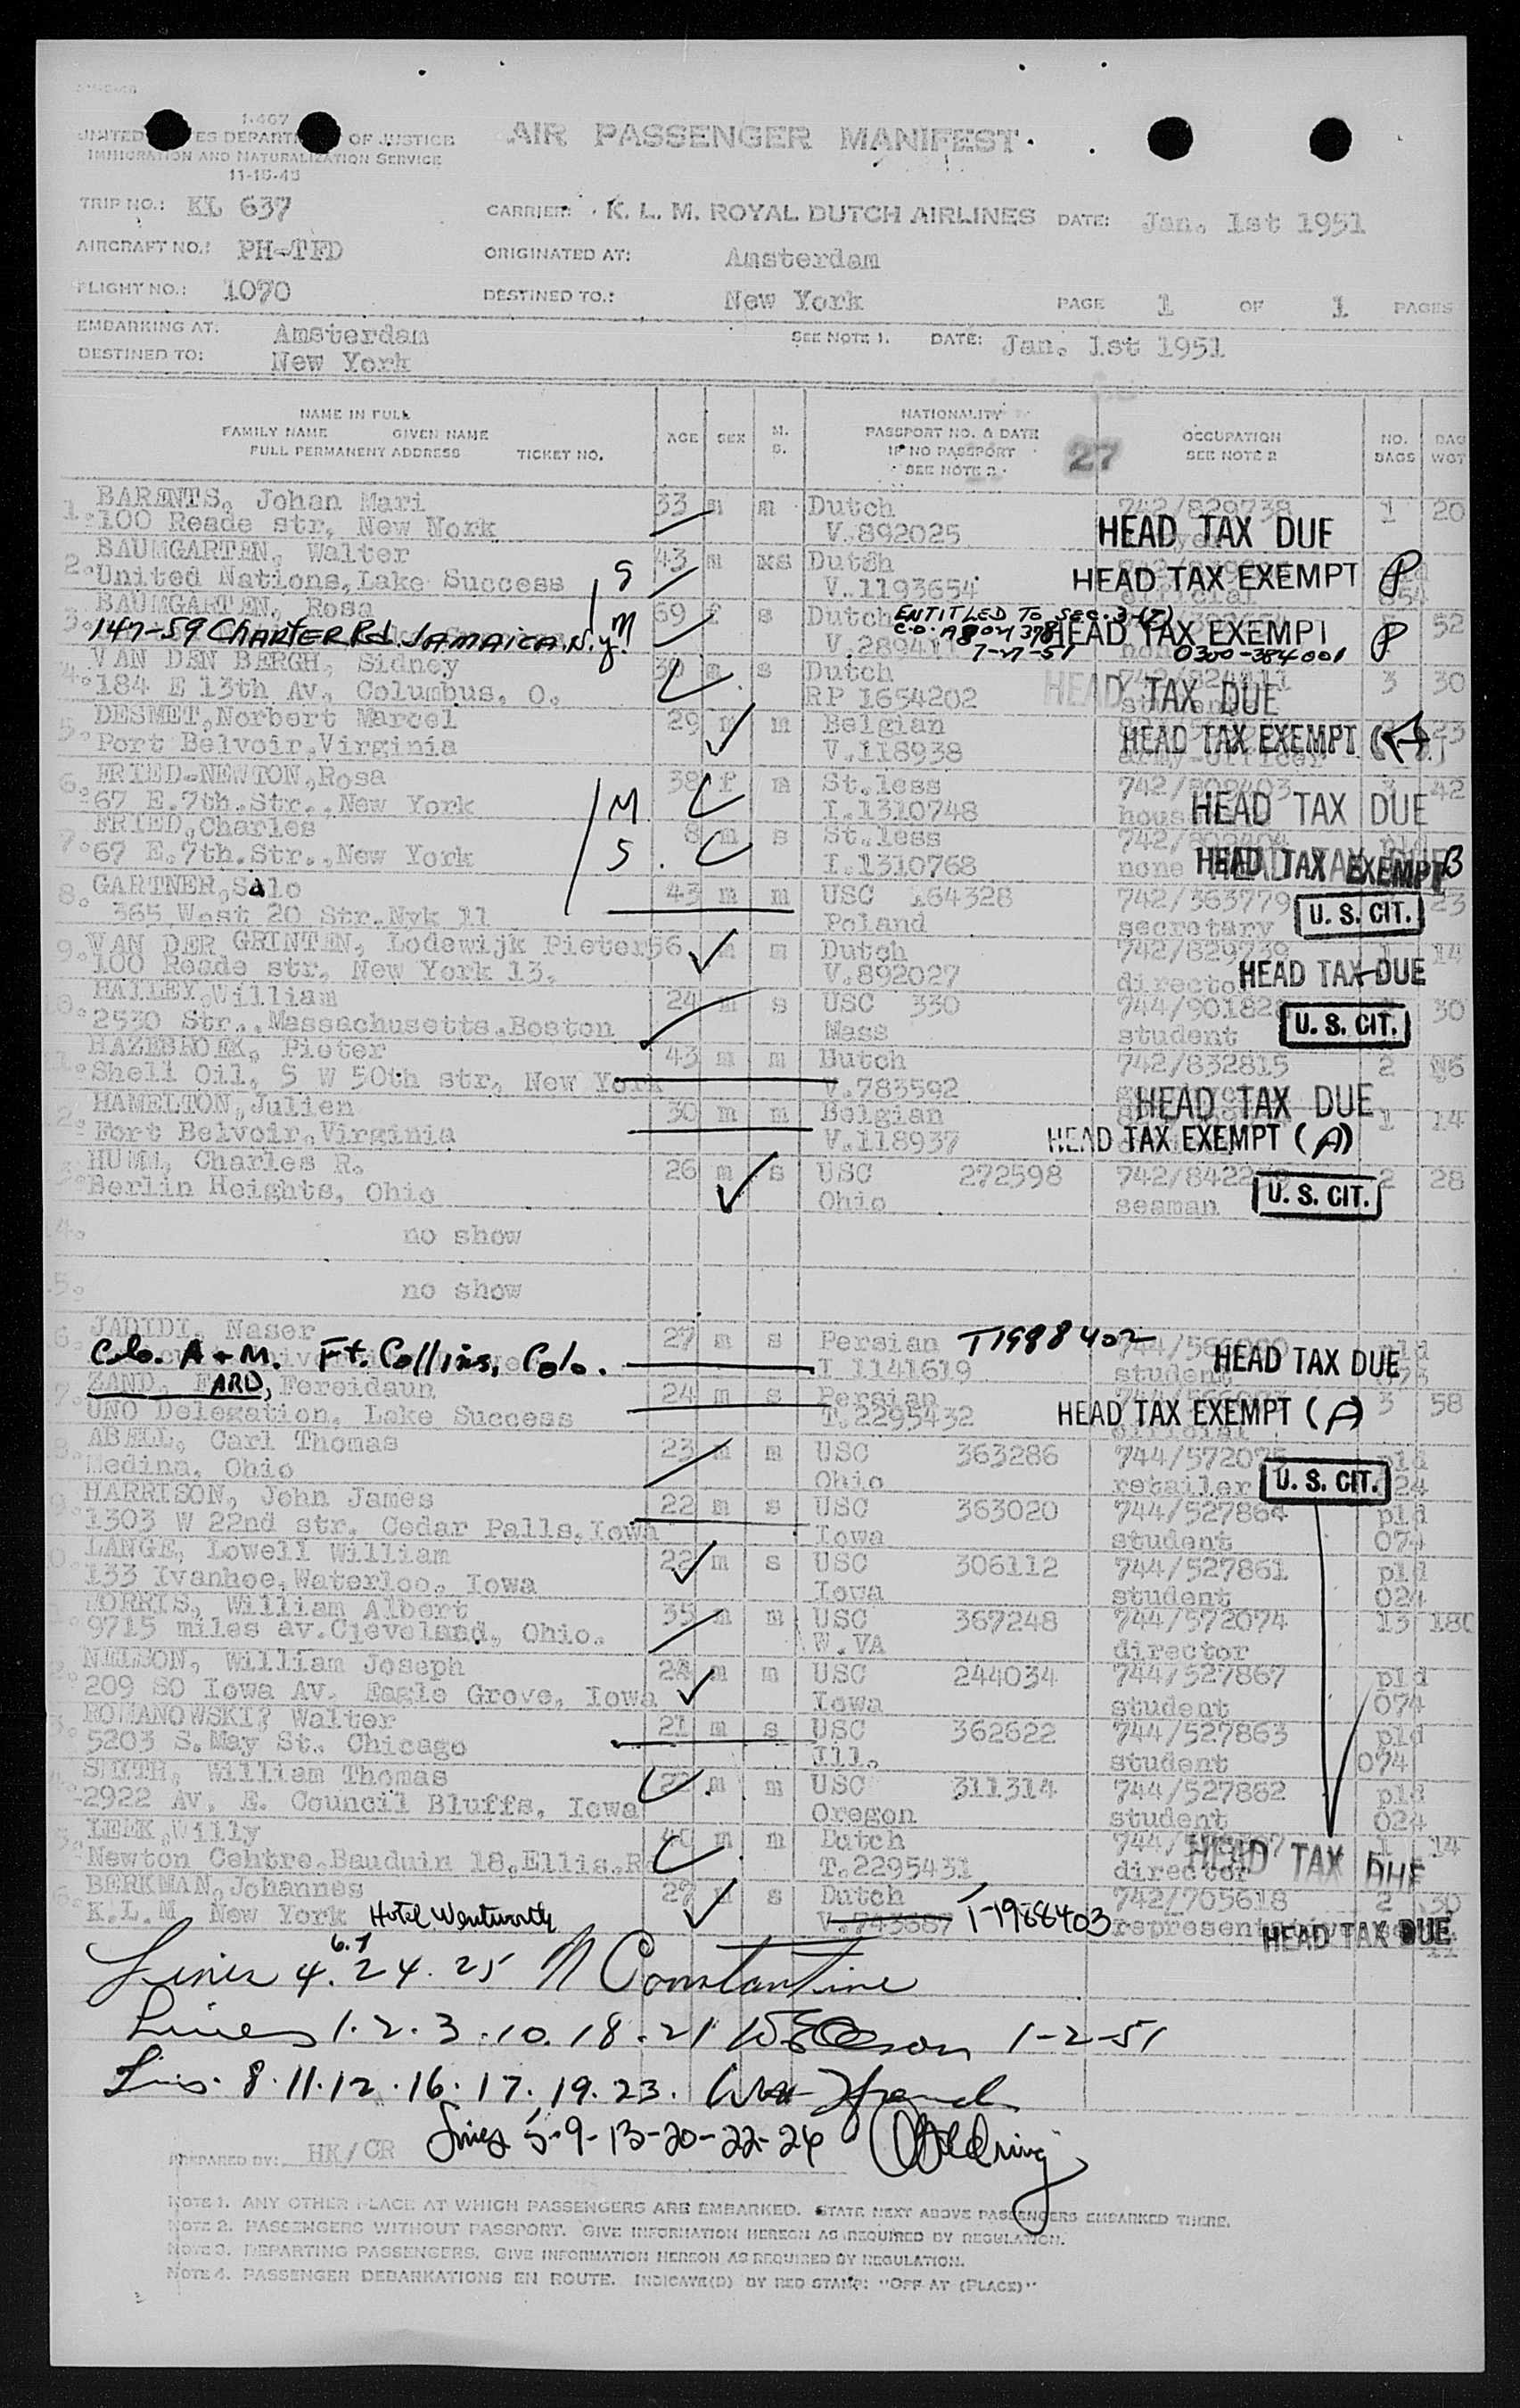 1-467
UNITED ES DEPART OF JUSTICE
IMMIGRATION AND NATURALIZATION SERVICE
11-15-43
AIR PASSENGER MANIFEST
TRIP NO.: KL 637 CARRIER: K. L. M. ROYAL DUTCH AIRLINES DATE: Jan. 1st 1951
AIRCRAFT NO.: PH-TFD ORIGINATED AT: Amsterdam
FLIGHT NO.: 1070 DESTINED TO.: New York PAGE 1 OF 1 PAGES
EMBARKING AT: Amsterdam SEE NOTE 1. DATE: Jan. 1st 1951
DESTINED TO: New York
NAME IN FULL
FAMILY NAME GIVEN NAME
FULL PERMANENT ADDRESS TICKET NO.
AGE SEX M. S.
NATIONALITY
PASSPORT NO. & DATE
IF NO PASSPORT
SEE NOTE 2
27
OCCUPATION
SEE NOTE 2
NO. BAGS BAG WGT
1. BARENTS, Johan Mari 33 m m Dutch 742/829738 1 20
100 Reade str, New Nork V.892025 HEAD TAX DUE
2. BAUMGARTEN, Walter 43 m xs Dutch
United Nations, Lake Success S V.1193654 HEAD TAX EXEMPT P
3. BAUMGARTEN, Rosa 69 f s Dutch ENTITLED TO SEC. 3-(7) 52
147-59 Charter Rd. JAMAICA. N.Y. M V.28941 7-27-51 HEAD TAX EXEMPT 0300-384001 P
4. VAN DEN BERGH, Sidney 30 m s Dutch 3 30
184 E 13th Av, Columbus, O. RP 1654202 HEAD TAX DUE
5. DESMET, Norbert Marcel 29 m m Belgian 23
Fort Belvoir, Virginia V.118938 HEAD TAX EXEMPT (A) army-officer
6. FRIED-NEWTON, Rosa 38 f m St.less 742/809403 3 42
67 E.7th.Str., New York M I.1310748 HEAD TAX DUE
7. FRIED, Charles 8 m s St.less 742/809404 pld
67 E.7th.Str., New York S I.1310768 none HEAD TAX EXEMPT B
8. GARTNER, Salo 43 m m USC 164328 742/363779 23
365 West 20 Str.Nyk 11 Poland secretary U. S. CIT.
9. VAN DER GRINTEN, Lodewijk Pieter 56 m m Dutch 742/829739 1 14
100 Reade str, New York 13. V.892027 director HEAD TAX DUE
0. HAILEY, William 24 m s USC 330 744/901828 30
2530 Str., Massachusetts, Boston Mass student U. S. CIT.
1. HAZEBROEK, Pieter 43 m m Dutch 742/832815 2
Shell Oil, 5 W 50th str, New York V.783592 HEAD TAX DUE
2. HAMELTON, Julien 30 m m Belgian 1 14
Fort Belvoir, Virginia V.118937 HEAD TAX EXEMPT (A)
HUMM, Charles R. 26 m s USC 272598 742/8422 2 28
Berlin Heights, Ohio Ohio seaman U. S. CIT.
4. no show
5. no show
6. JADIDI, Naser 27 m s Persian T1988402 pld
Colo. A & M. Ft. Collins, Colo. I 1141619 student HEAD TAX DUE
7. ZAND, FARD, Fereidaun 24 m s Persian 3 58
UNO Delegation, Lake Success T.2295432 HEAD TAX EXEMPT (A) official
8. ABELL, Carl Thomas 23 m m USC 363286 744/572075 pld
Medina, Ohio Ohio retailer U. S. CIT. 24
9. HARRISON, John James 22 m s USC 363020 744/527864 pld
1303 W 22nd str. Cedar Falls, Iowa Iowa student 074
0. LANGE, Lowell William 22 m s USC 306112 744/527861 pld
133 Ivanhoe, Waterloo, Iowa Iowa student 024
MORRIS, William Albert 35 m m USC 367248 744/572074 13 180
9715 miles av.Cleveland, Ohio. W.VA director
NELSON, William Joseph 28 m m USC 244034 744/527867 pld
209 SO Iowa Av. Eagle Grove, Iowa Iowa student 074
3. ROMANOWSKI? Walter 21 m s USC 362622 744/527863 pld
5203 S.May St. Chicago Ill. student 074
SMITH, William Thomas 22 m m USC 311314 744/527862 pld
2922 AV. E. Council Bluffs, Iowa Oregon student 024
5. LEEK, Willy 40 m m Dutch 1 14
Newton Centre, Bauduin 18, Ellis.Rd T.2295431 director HEAD TAX DUE
BERKMAN, Johannes 27 m s Dutch 742/705618 2 30
K.L.M. New York Hotel Wentworth V.743687 T-1988403 HEAD TAX DUE
6.7
Lines 4. 24. 25 N Constantine
Lines 1. 2. 3. 10. 18. 21 1-2-51
Lines. 8. 11. 12. 16. 17. 19. 23.
Lines 5-9-13-20-22-26
PREPARED BY: HK/CR
NOTE 1. ANY OTHER PLACE AT WHICH PASSENGERS ARE EMBARKED. STATE NEXT ABOVE PASSENGERS EMBARKED THERE.
NOTE 2. PASSENGERS WITHOUT PASSPORT. GIVE INFORMATION HEREON AS REQUIRED BY REGULATION.
NOTE 3. DEPARTING PASSENGERS. GIVE INFORMATION HEREON AS REQUIRED BY REGULATION.
NOTE 4. PASSENGER DEBARKATIONS EN ROUTE. INDICATE(D) BY RED STAMP: "OFF AT (PLACE)"